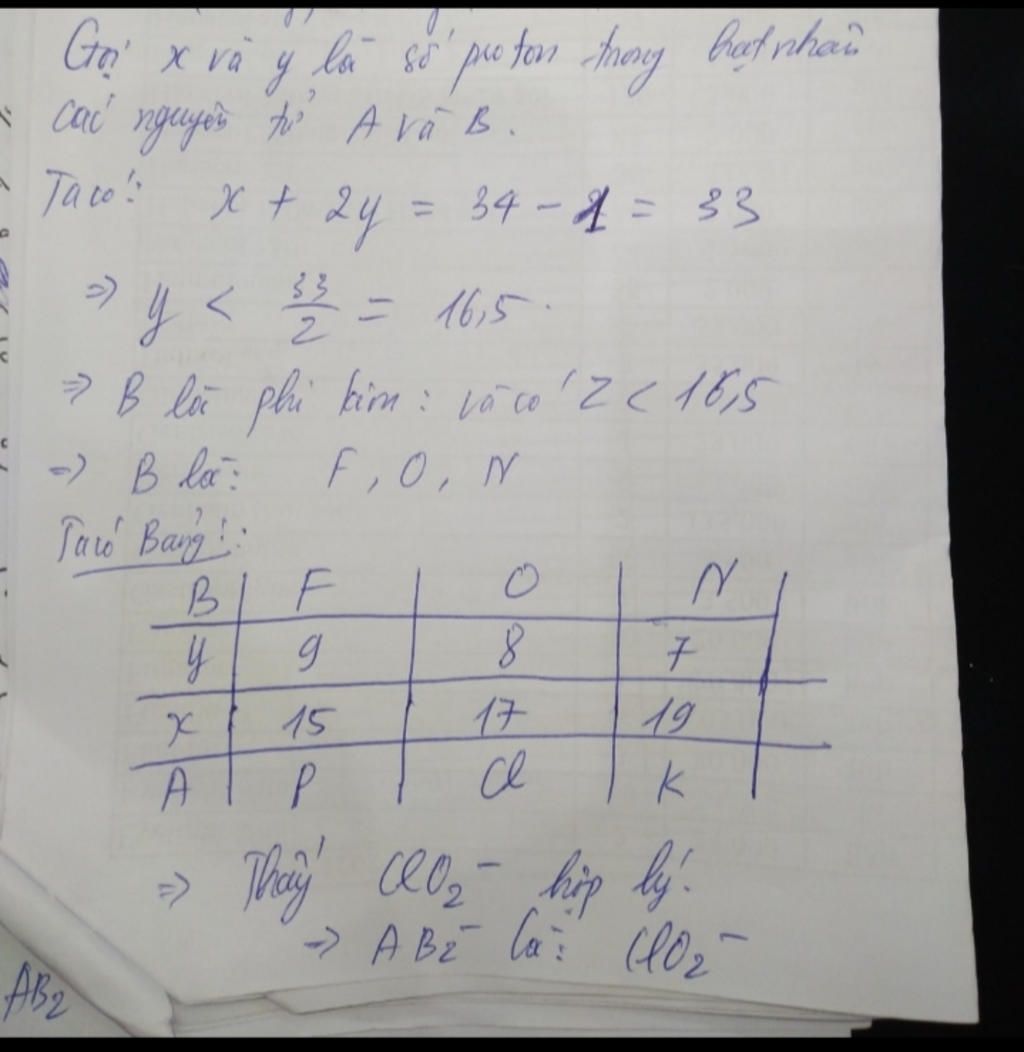 Gọi x và y là số proton trong hạt nhân
các nguyên tử A và B.
Ta có: x + 2y = 34 - 1 = 33
=> y < 33/2 = 16,5.
=> B là phi kim: và có Z < 16,5
=> B là: F, O, N
Ta có Bảng:
B | F | O | N
y | 9 | 8 | 7
x | 15 | 17 | 19
A | P | Cl | K
=> Thấy ClO₂⁻ hợp lý.
=> AB₂⁻ là: ClO₂⁻
AB₂